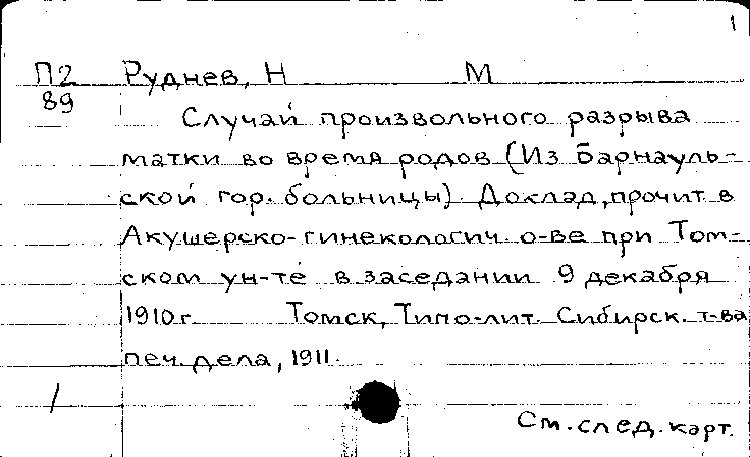 1
П2 Руднев, Н М
89
Случай произвольного разрыва
матки во время родов (Из Барнауль-
ской гор. больницы) Доклад, прочит. в
Акушерско-гинекологич. о-ве при Том-
ском ун-те в заседании 9 декабря
1910 г. Томск, Типо-лит. Сибирск. т-ва
печ. дела, 1911.
/
См. след. карт.